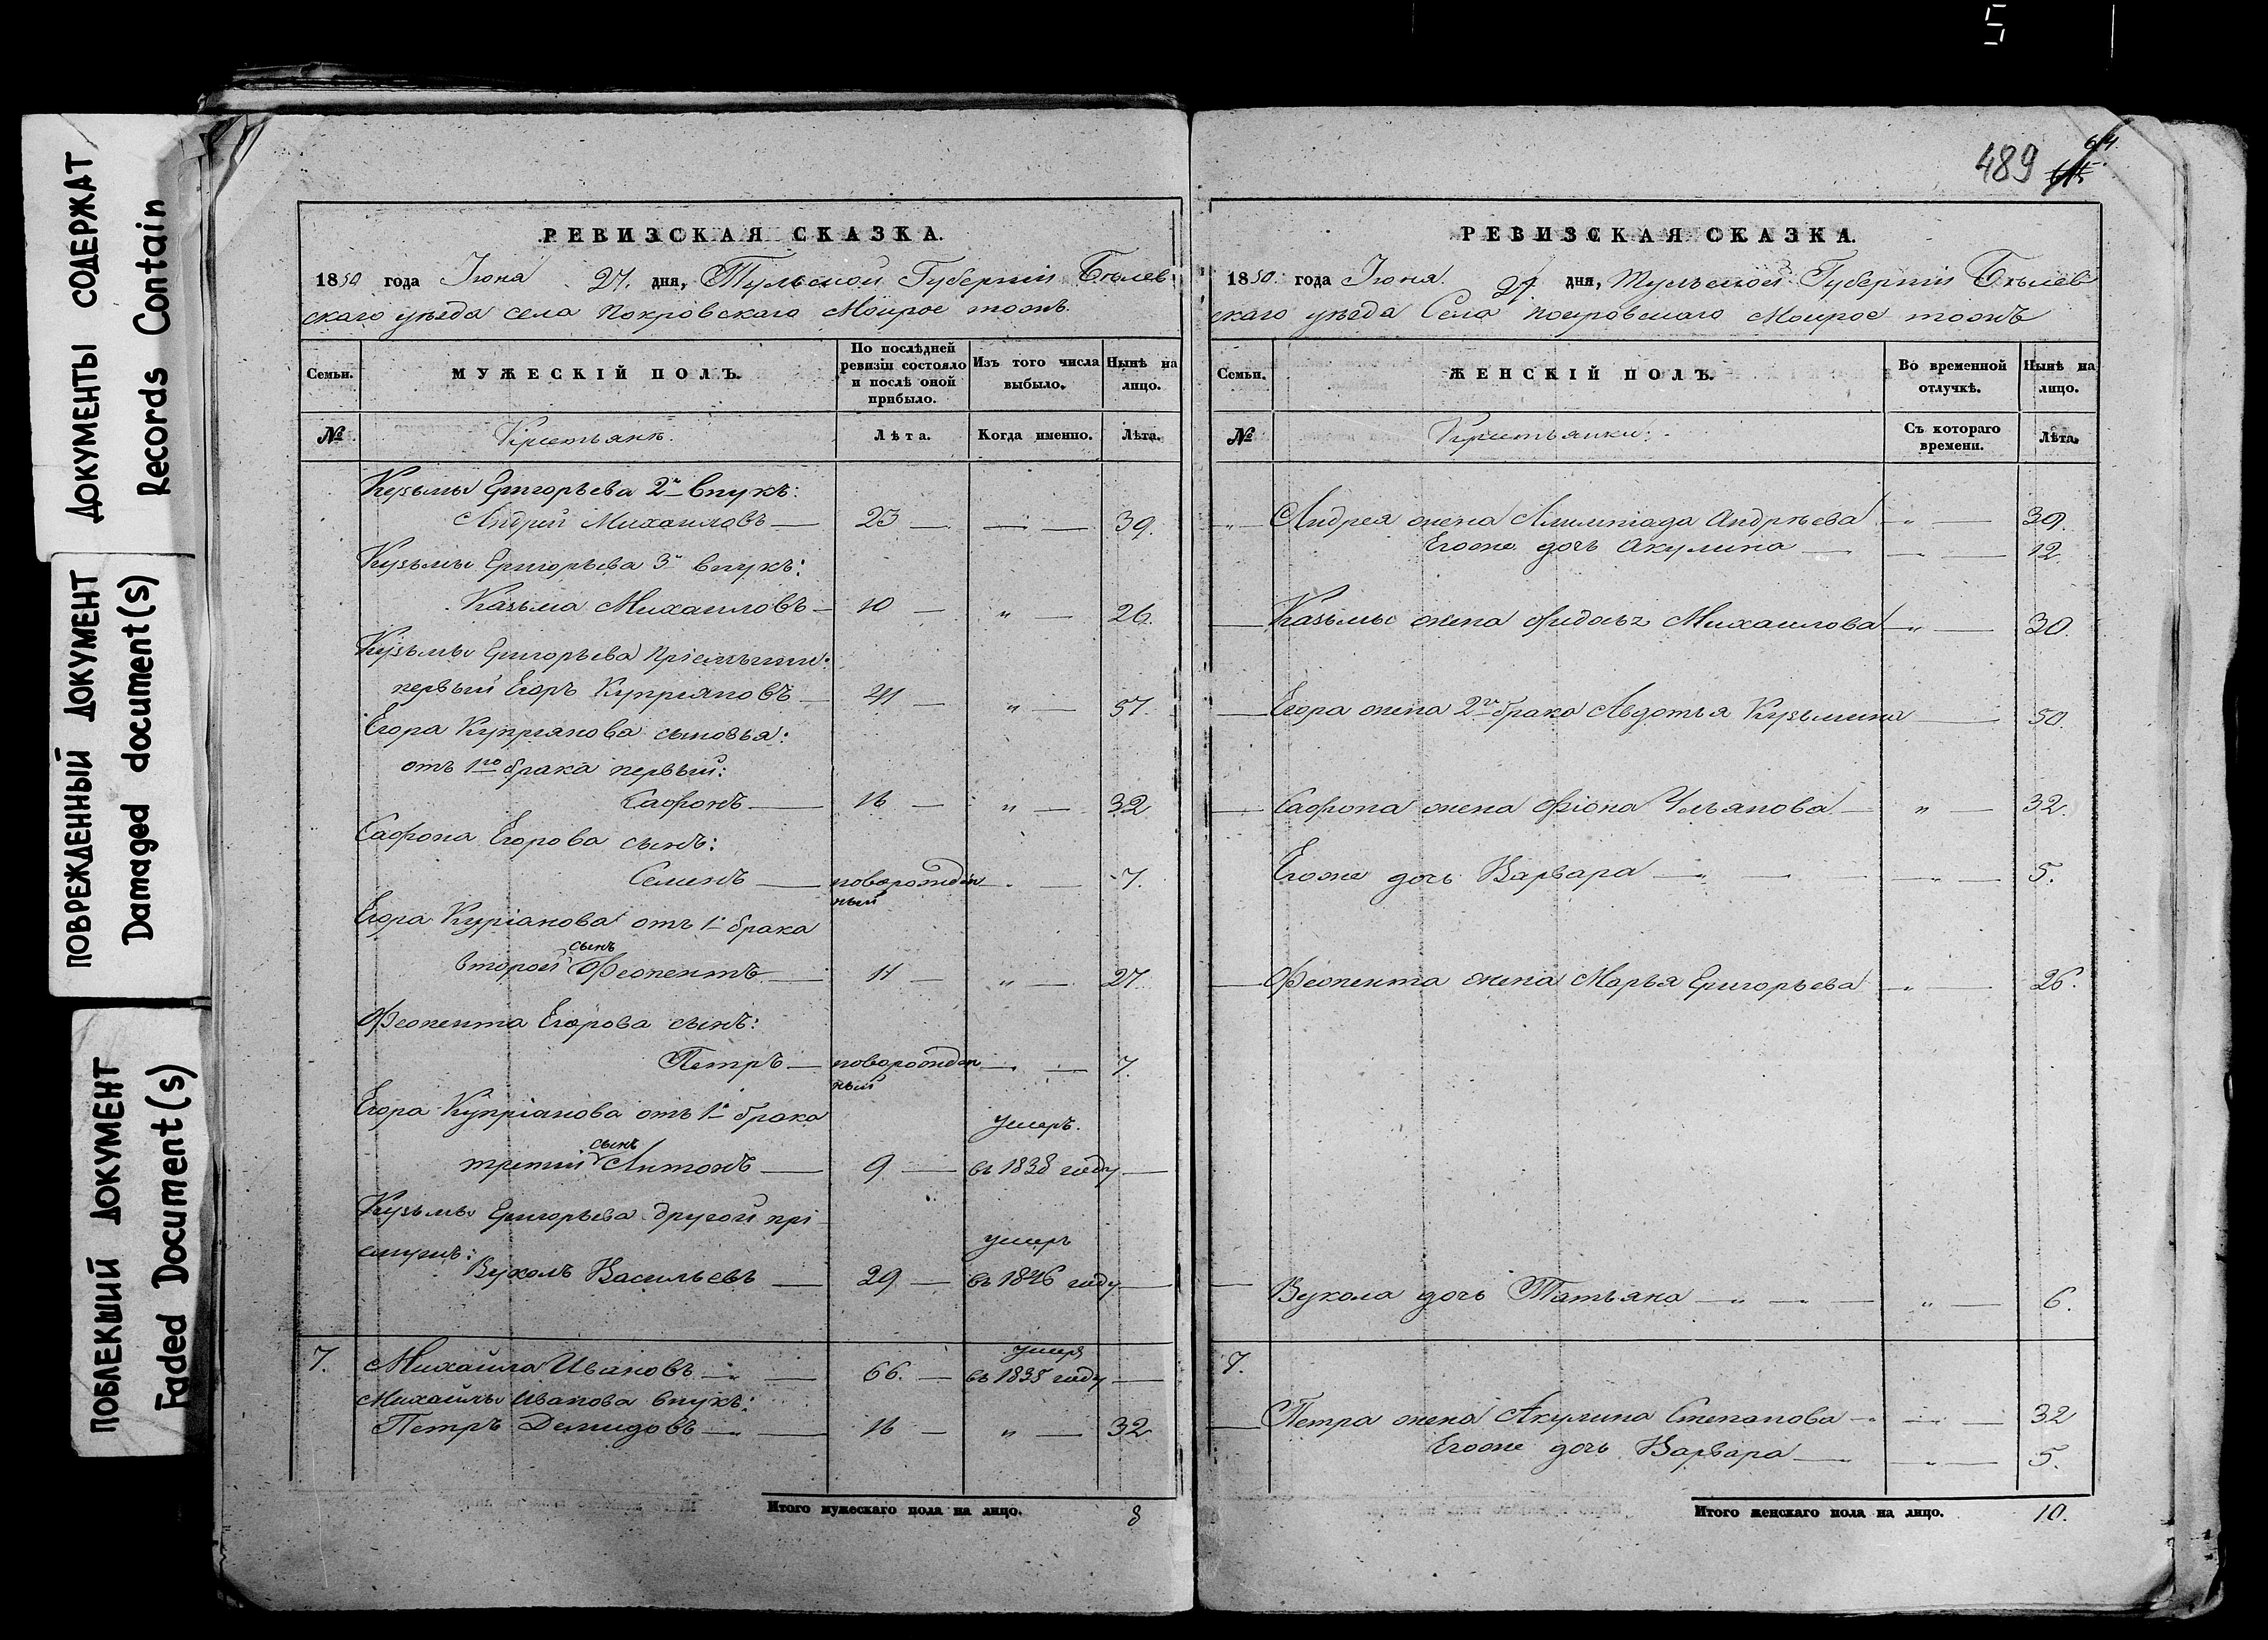 5
ДОКУМЕНТЫ СОДЕРЖАТ
Records Contain
ПОВРЕЖДЕННЫЙ ДОКУМЕНТ
Damaged document(s)
ПОБЛЕКШИЙ ДОКУМЕНТ
Faded Document(s)
РЕВИЗСКАЯ СКАЗКА.
1850 года Iюня 27. дня, Тульской Губернiи Бѣлев
скаго уѣзда села Покровскаго Мокрое тожъ.
Семьи.
МУЖЕСКІЙ ПОЛЪ.
По послѣдней ревизіи состояло и послѣ оной прибыло.
Изъ того числа выбыло.
Нынѣ на лицо.
№
Крестьянѣ.
Лѣта.
Когда именно.
Лѣта.
Кузьмы Григорьева 2й внукъ:
Андрей Михаиловъ — 23 — — — 39.
Кузьмы Григорьева 3й внукъ:
Казьма Михаиловъ — 10 — " — 26.
Кузьмы Григорьева Прiемыши:
первый Егоръ Купрiяновъ — 41 — " — 57.
Егора Купрiянова сыновья:
отъ 1го брака первый:
Сафронъ — 16 — " — 32
Сафрона Егорова сынъ:
Семенъ — новорожден — 7.
ный
Егора Курiанова отъ 1 брака
сынъ
второй Феопентъ — 11 — " — 27.
Феопента Егорова сынъ:
Петръ — новорожден — 7.
ный
Егора Купрiанова отъ 1 брака
умеръ.
сынъ
третий Антонъ — 9 — въ 1838 году —
Кузьмы Григорьева другой прi
емышъ: умеръ
Вуколъ Васильевъ — 29 — въ 1846 году —
умеръ
7. Михайла Ивановъ — 66. — въ 1835 году —
Михайлы Иванова внукъ:
Петръ Демидовъ — 16 — " — 32
Итого мужескаго пола на лицо. 8
489 614.
РЕВИЗСКАЯ СКАЗКА.
1850. года Iюня. 27 дня, Тульской Губернiи Бѣлев
скаго уѣзда Села Покровскаго Мокрое тожъ
Семьи.
ЖЕНСКІЙ ПОЛЪ.
Во временной отлучкѣ.
Нынѣ на лицо.
№
Крестьянки:
Съ котораго времени.
Лѣта.
Андрея жена Алимпiада Андрѣева " — 39.
Егоже дочь Акулина — — 12.
Казьмы жена Михаилова — " — 30.
Егора жена 2го брака Авдотья Кузьмина — 50.
Сафрона жена Фiона Ульянова — " — 32.
Егоже дочь Варвара — — 5.
Феопента жена Марья Григорьева — 26.
Вукола дочь Татьяна — " — 6.
7.
Петра жена Акулина Степанова — — 32
Егоже дочь Варвара — — 5.
Итого женскаго пола на лицо. 10.